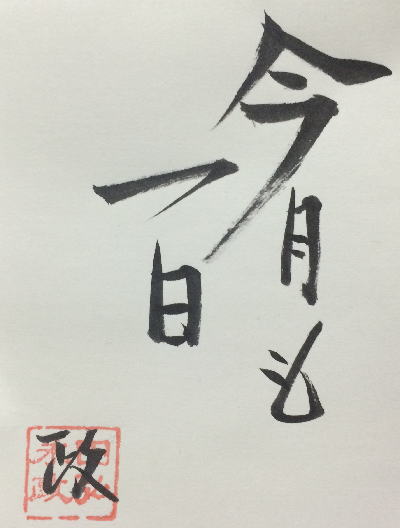 今月も
一日
政